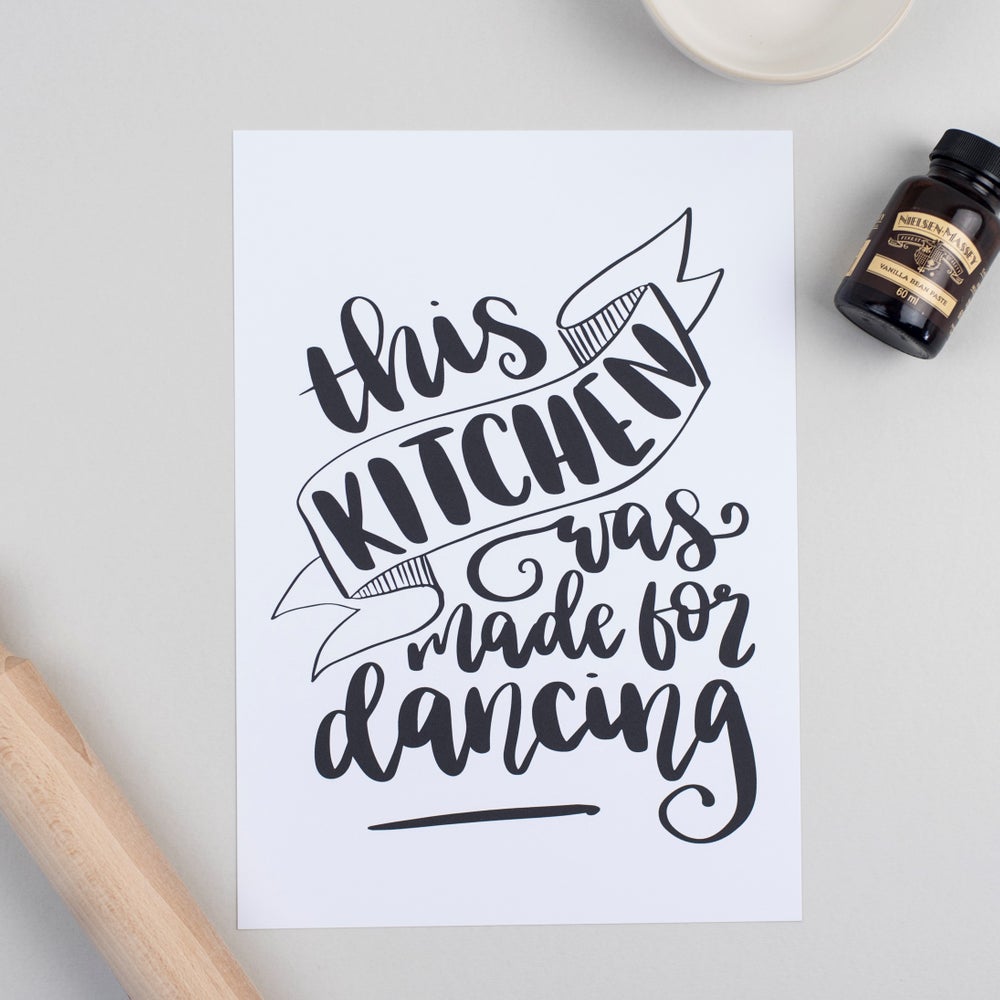 this
KITCHEN
was
made for
dancing
NIELSEN-MASSEY
VANILLA BEAN PASTE
60 ml